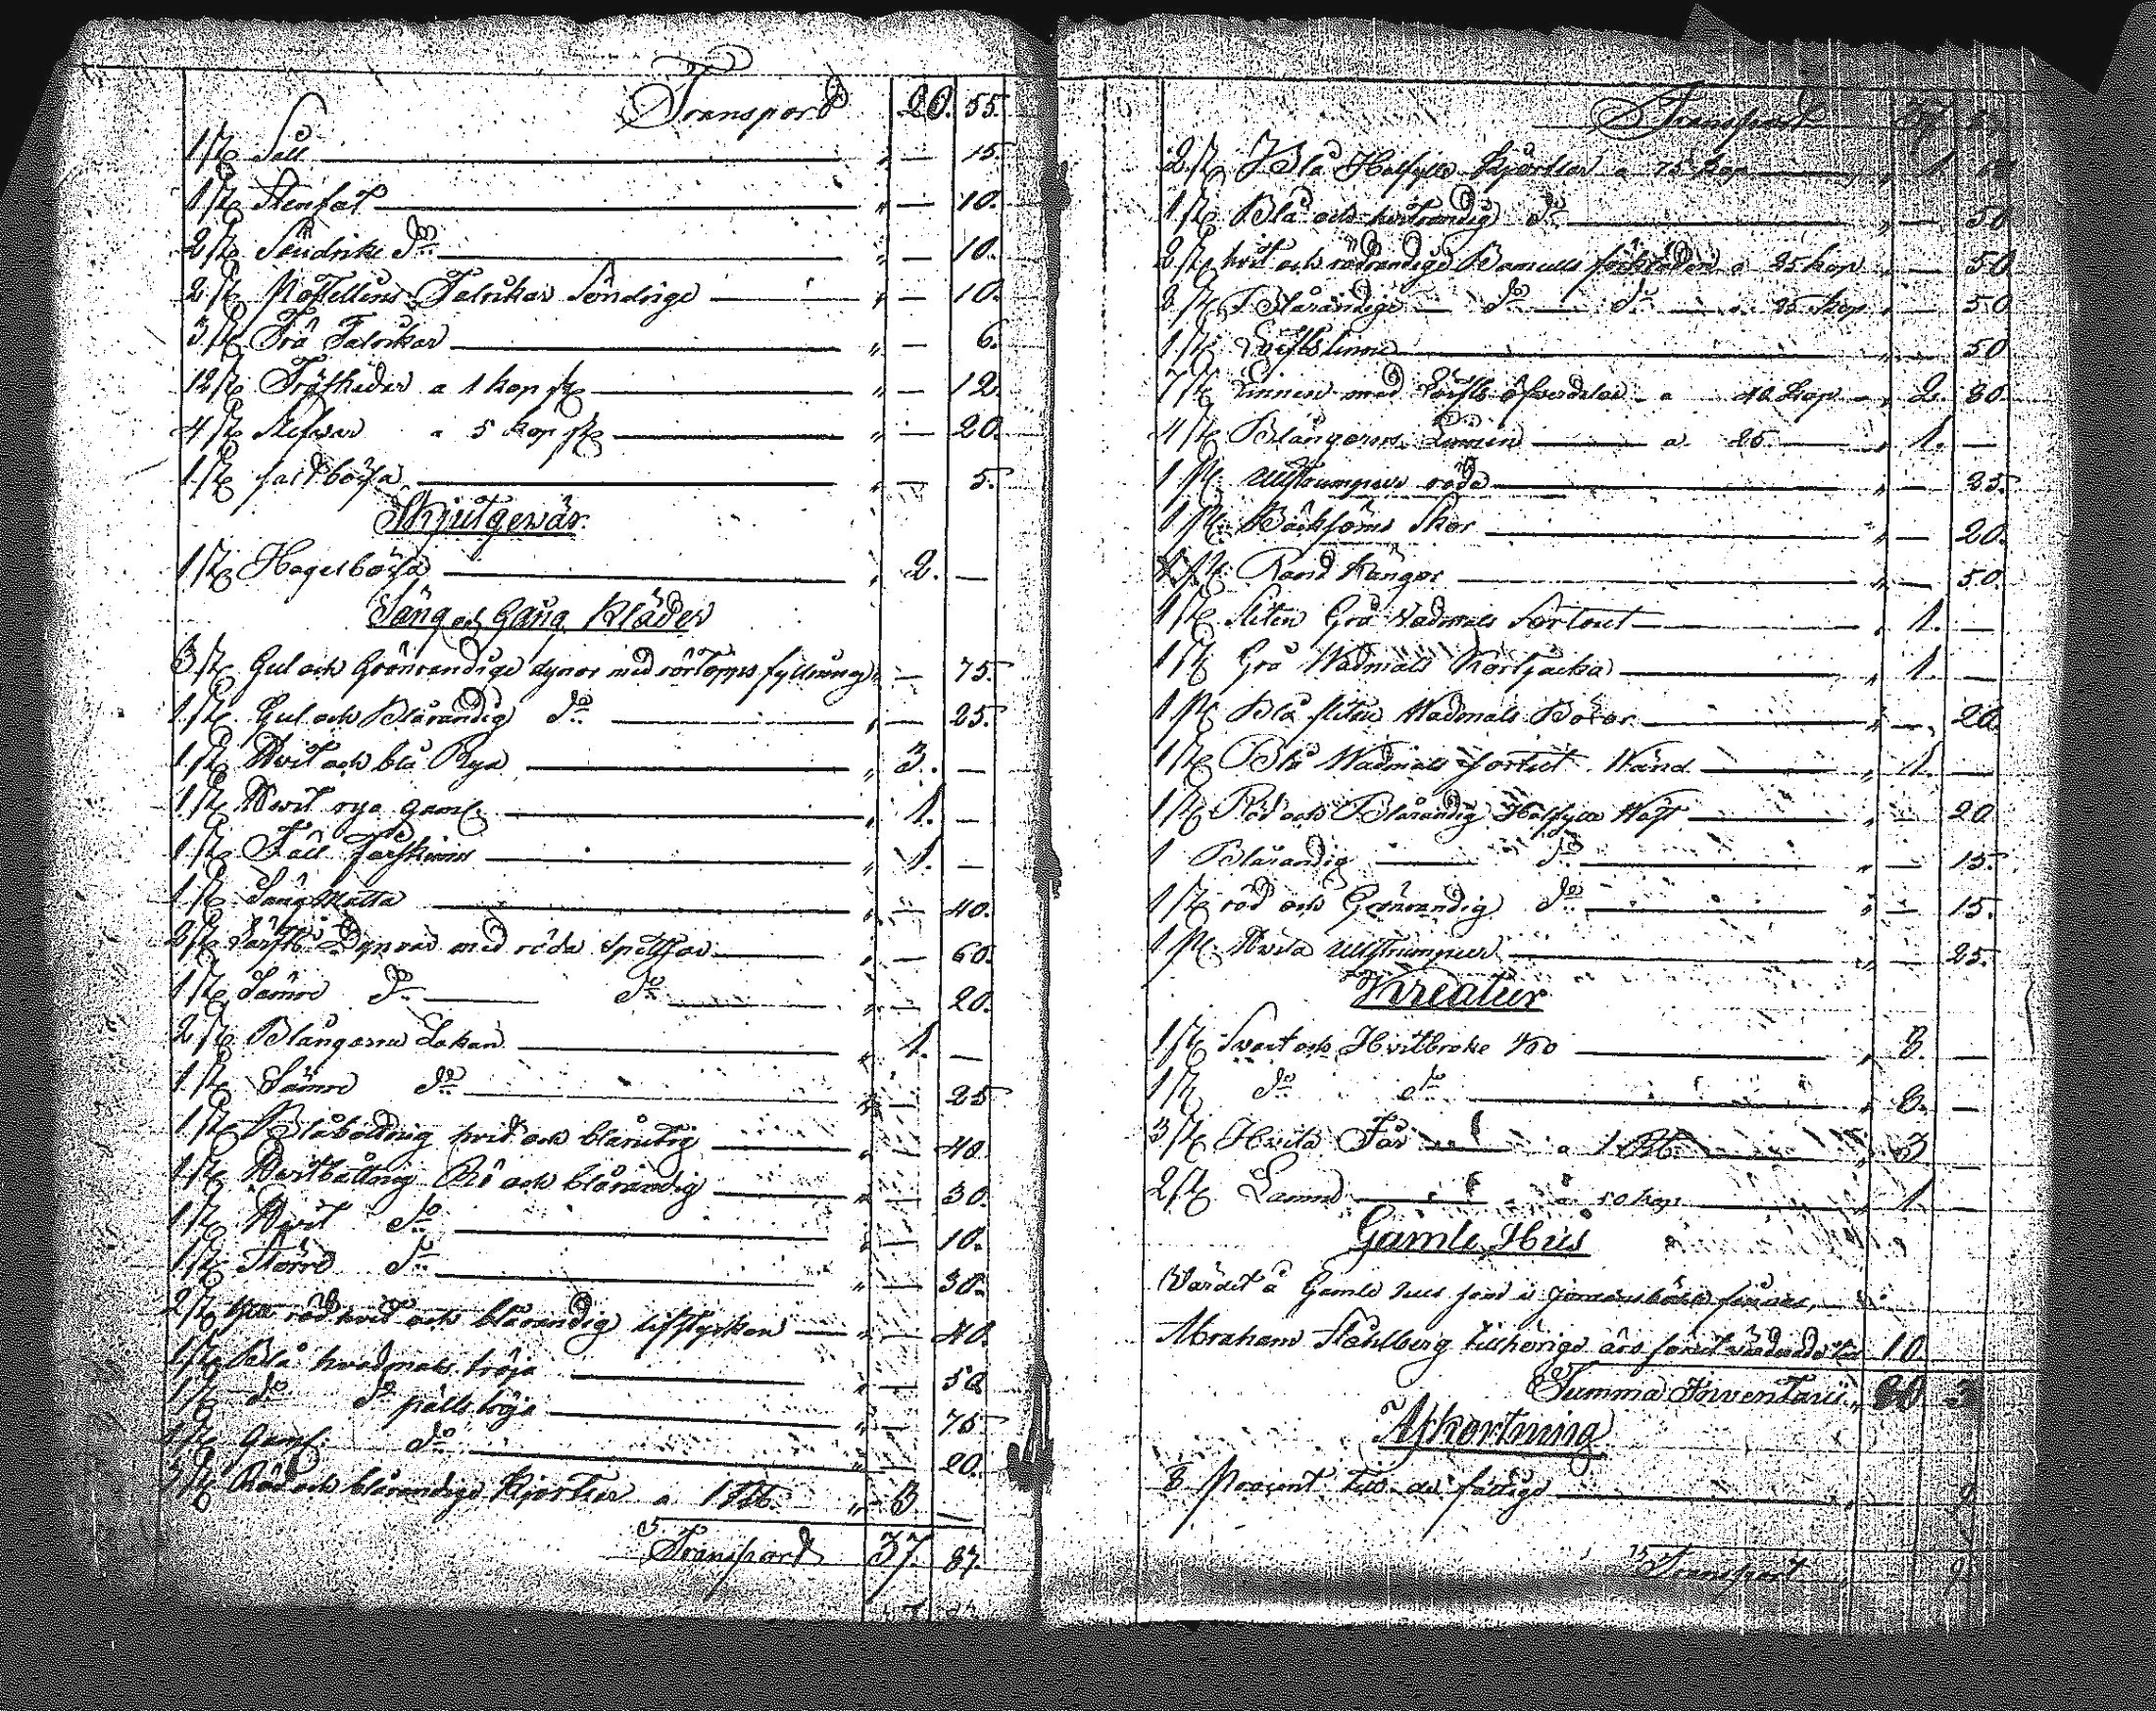 Transpord 20. 55.
1 st Såll " — 15.
1 st Stenfat " — 10.
2 st Söndrike Do " — 10.
2 st Postellins Talrikar Söndrige " — 10.
3 st Trä Talrikar " — 6.
12 st Träskedar a 1 kop st " — 12.
4 st Knifvar a 5 kop st " — 20.
1 st saltbössa " — 5.
Skjutgewär
1 st Hagelbössa " 2. —
Säng och Gång Kläder
3 st Gul och Grönrandige dynor med rörtopps fyllning " — 75.
1 st Gul och Blårandig Do " — 25.
1 st Hwit och blå Rya " 3. —
1 st Hwit rya gaml. " 1. —
1 st Fäll Fårskinns " 1. —
1 st Säng Matta " — 40.
2 st Lärfts Dynvar med röda spettsar " — 60.
1 st Sämre Do Do " — 20.
2 st Blångarns Lakan " 1. —
1 st Sämre Do " — 25
1 st Blåbottnig hvit och blårutig " — 40.
1 st Hwitbåttnig Rö och blårandig " — 30.
1 st Hwit Do " — 10.
1 st Större Do " — 30.
2 st röd hvit och blårandig lifstycken " — 40.
1 st Blå hvadmals tröja " — 50
1 st Do Do pälls tröja " — 75
1 st gaml. Do " — 20.
3 st Röd och blårandige Kjortlar a 1 Rbl. " 3 —
Transpord 37. 87.
Transpord 37 87
2 st Blå Halfylle Kjortlar a 75 kop " 1. 50
1 st Blå och hvitrandig Do " — 50
2 st hvit och rödrandige Bomulls förkläden a 25 kop " — 50
2 st Blårandige Do Do a 25 kop " — 50
1 st Lärftslinne " — 50
7 st Linnen med Lärfts öfverdelar a 40 kop " 2. 80.
4 st Blångarns Linnen a 25 " 1. —
1 pr Ullstrumpor röda " — 25.
1 pr Bäcksöms Skor " — 20.
1 pr Rand Kängor " — 50.
1 st Sliten Grå Vadmals Sortout " 1. —
1 st Grå Wadmals Kortjacka " 1. —
1 pr Blå sliten Wadmals Böxor " — 20
1 st Blå Wadmals sortut Wänd " 1. —
1 st Röd och Blårandig Halfylle Wäst " — 20
1 Blårandig Do " — 15.
1 st röd och Grönrandig Do " — 15.
1 pr Hvita Ullstrumpor " — 25.
Kreatur
1 st Svart och Hvitbroke Ko " 8. —
1 st Do Do " 8. —
3 st Hvita Får a 1 Rbl. " 3 —
2 st Lamm a 50 kop " 1. —
Gamle Hus
Värdet å Gamle hus som i
Abraham Ståhlberg tillhörige äro förut värderade till 10
Summa Inventarii " 80 3
Afkortning
8 Procent till de fattige
Transport